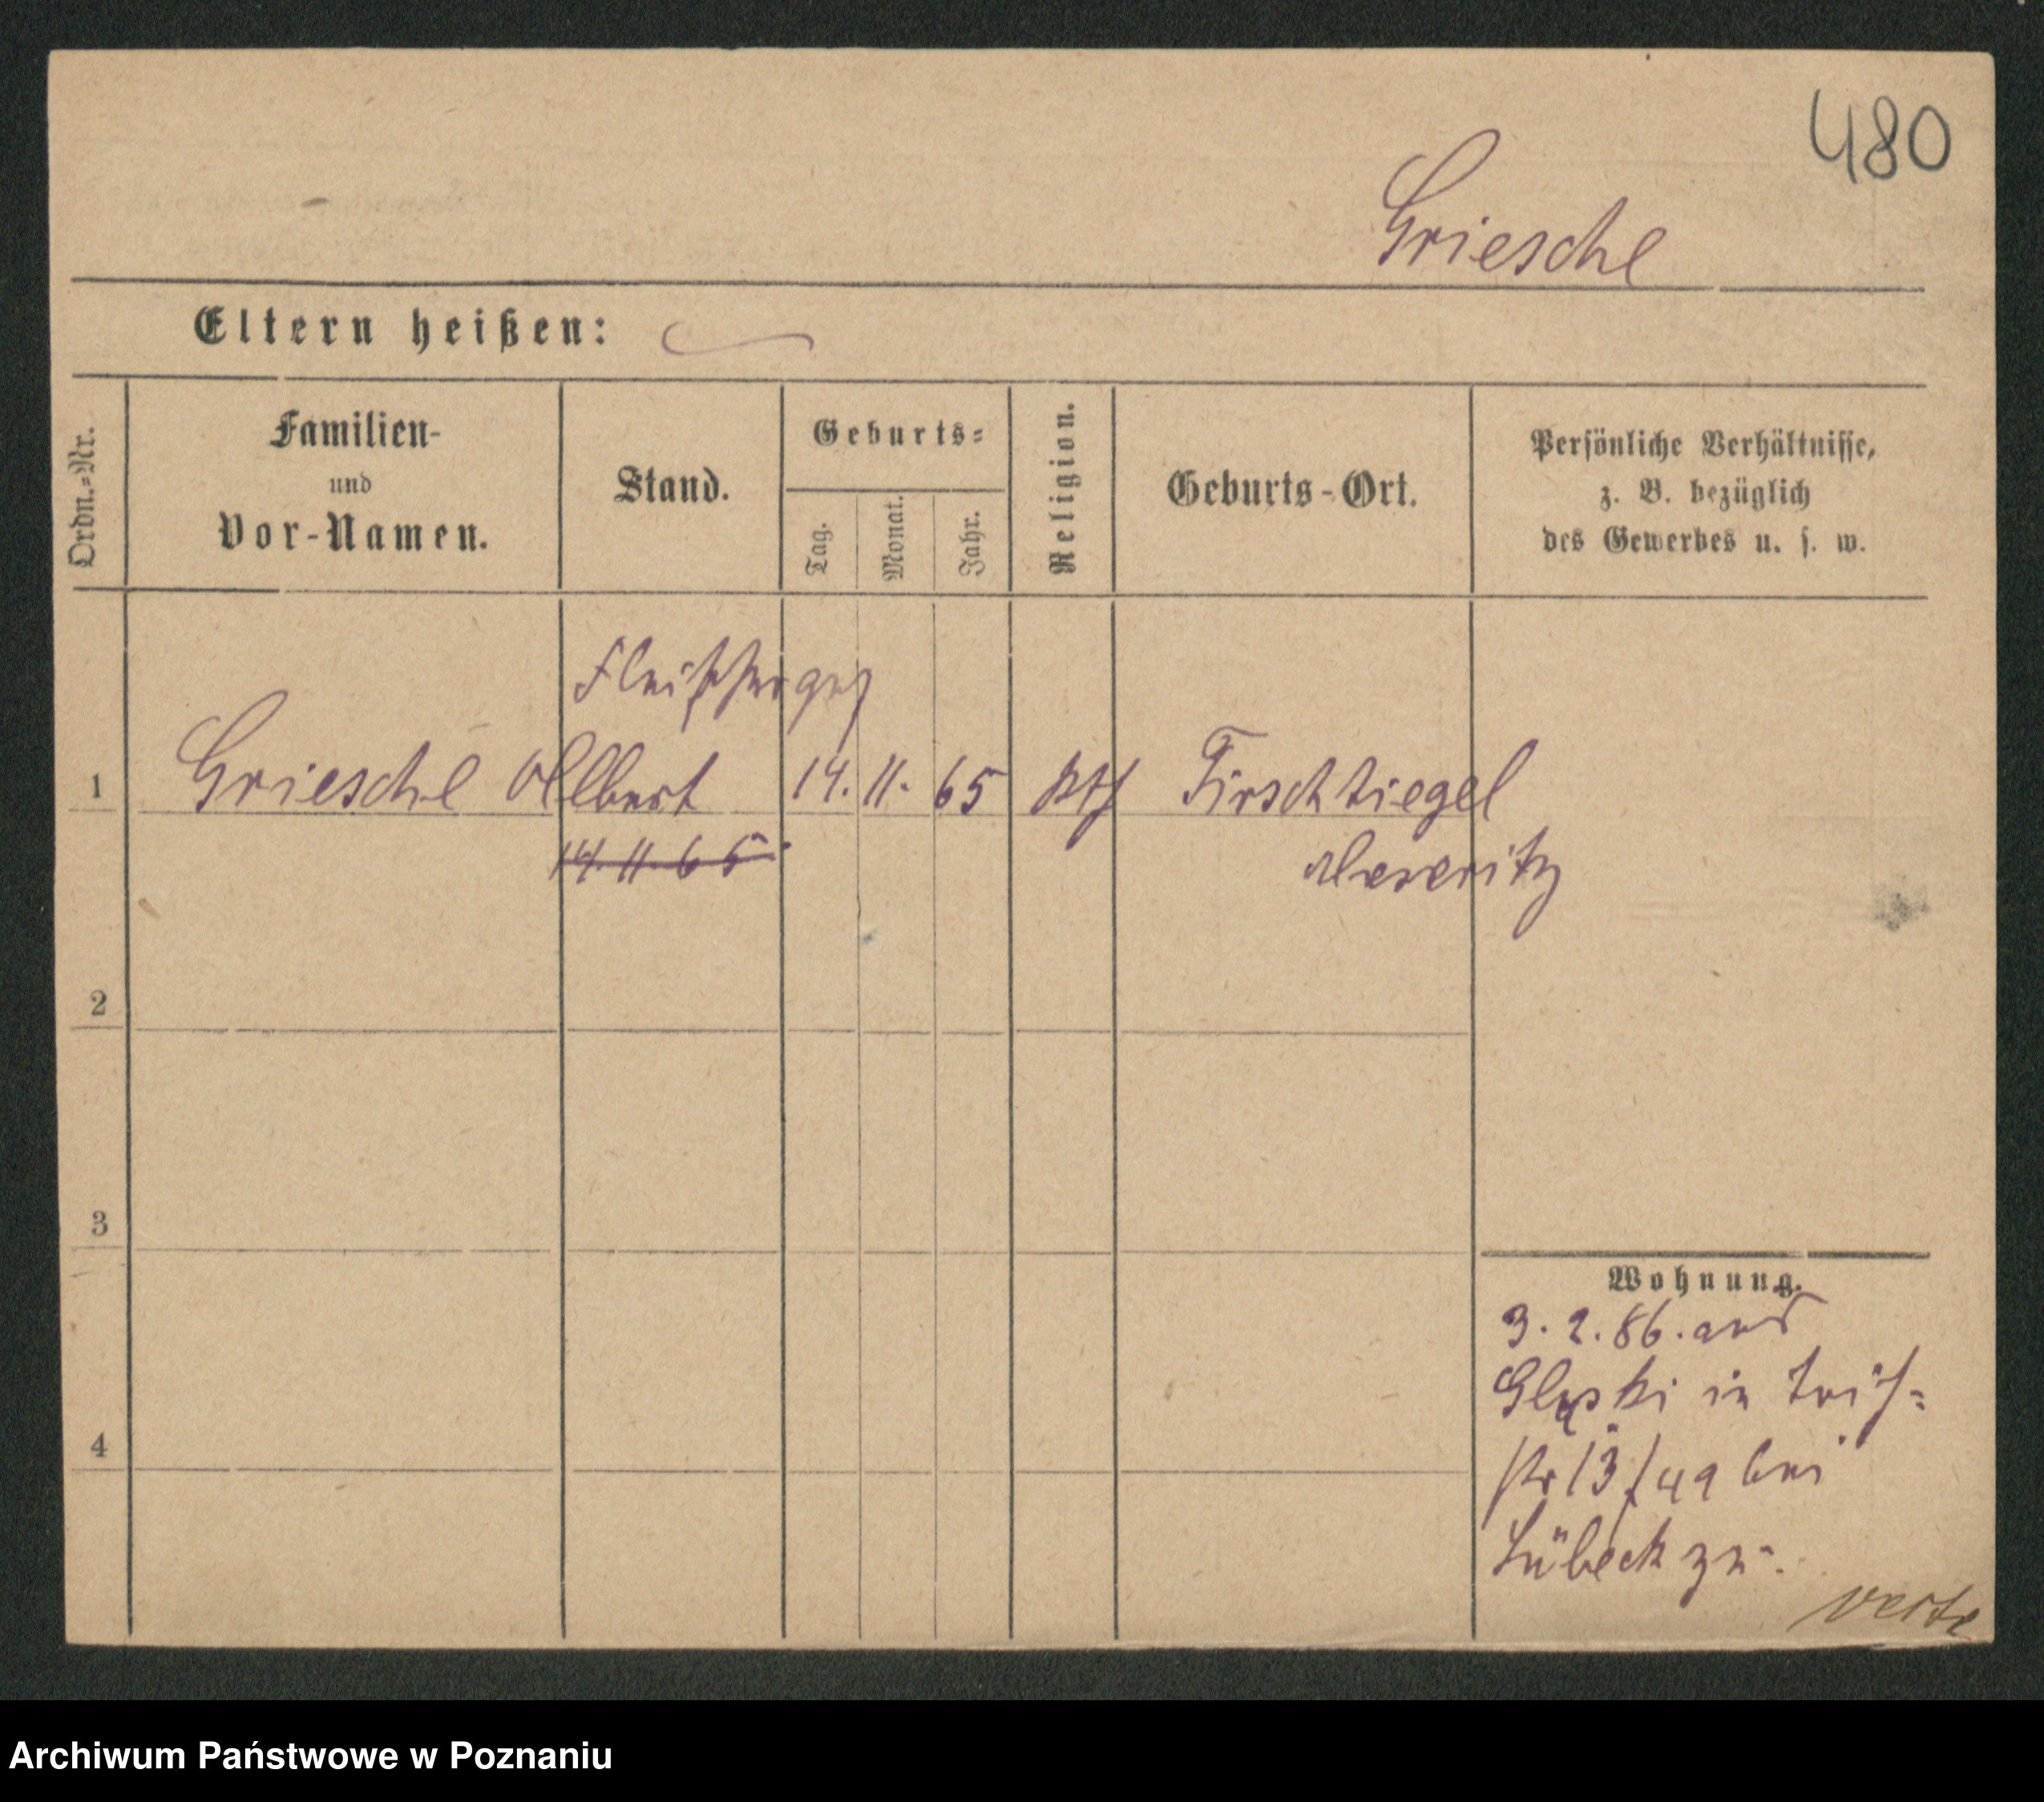 480
Griesche
Eltern heißen:
Ordn.-Nr.
Familien-
und
Vor-Namen.
Stand.
Geburts-
Tag.
Monat.
Jahr.
Religion.
Geburts-Ort.
Persönliche Verhältnisse,
z. B. bezüglich
des Gewerbes u. s. w.
Fleischerges
1 Griesche Albert 14. 11. 65 kth Tirschtiegel
14. 11. 65 Meseritz
2
3
4
Wohnung.
3. 2. 86. aus
in
13/49 bei
Lübeck zu.
verte
Archiwum Państwowe w Poznaniu